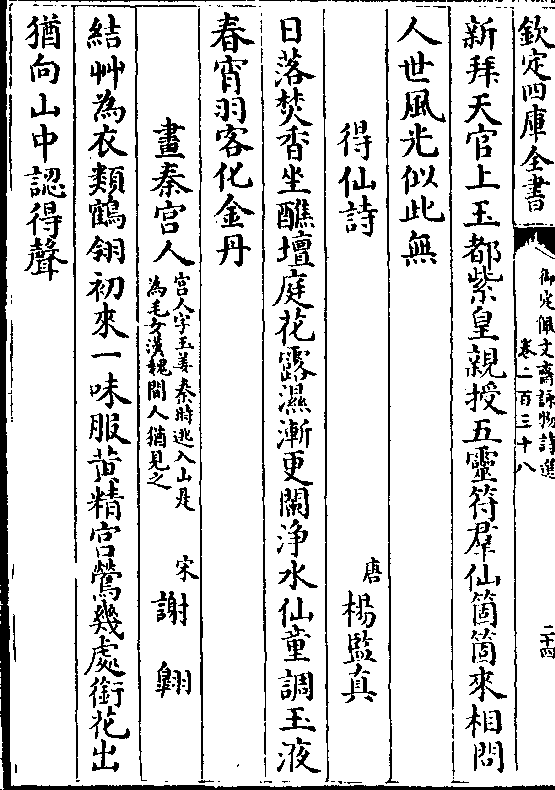 欽定四庫全書
御定佩文齋詠物詩選
卷二百三十八
二十四
新拜天官上玉都紫皇親授五靈符羣仙箇箇來相問
人世風光似此無
得仙詩
唐 楊監真
日落焚香坐醮壇庭花露濕漸更闌淨水仙童調玉液
春宵羽客化金丹
畫秦宮人
宮人字玉姜秦時逃入山是
為毛女漢魏間人猶見之
宋 謝翱
結艸為衣類鶴翎初來一味服黄精宮鶯幾處銜花出
猶向山中認得聲